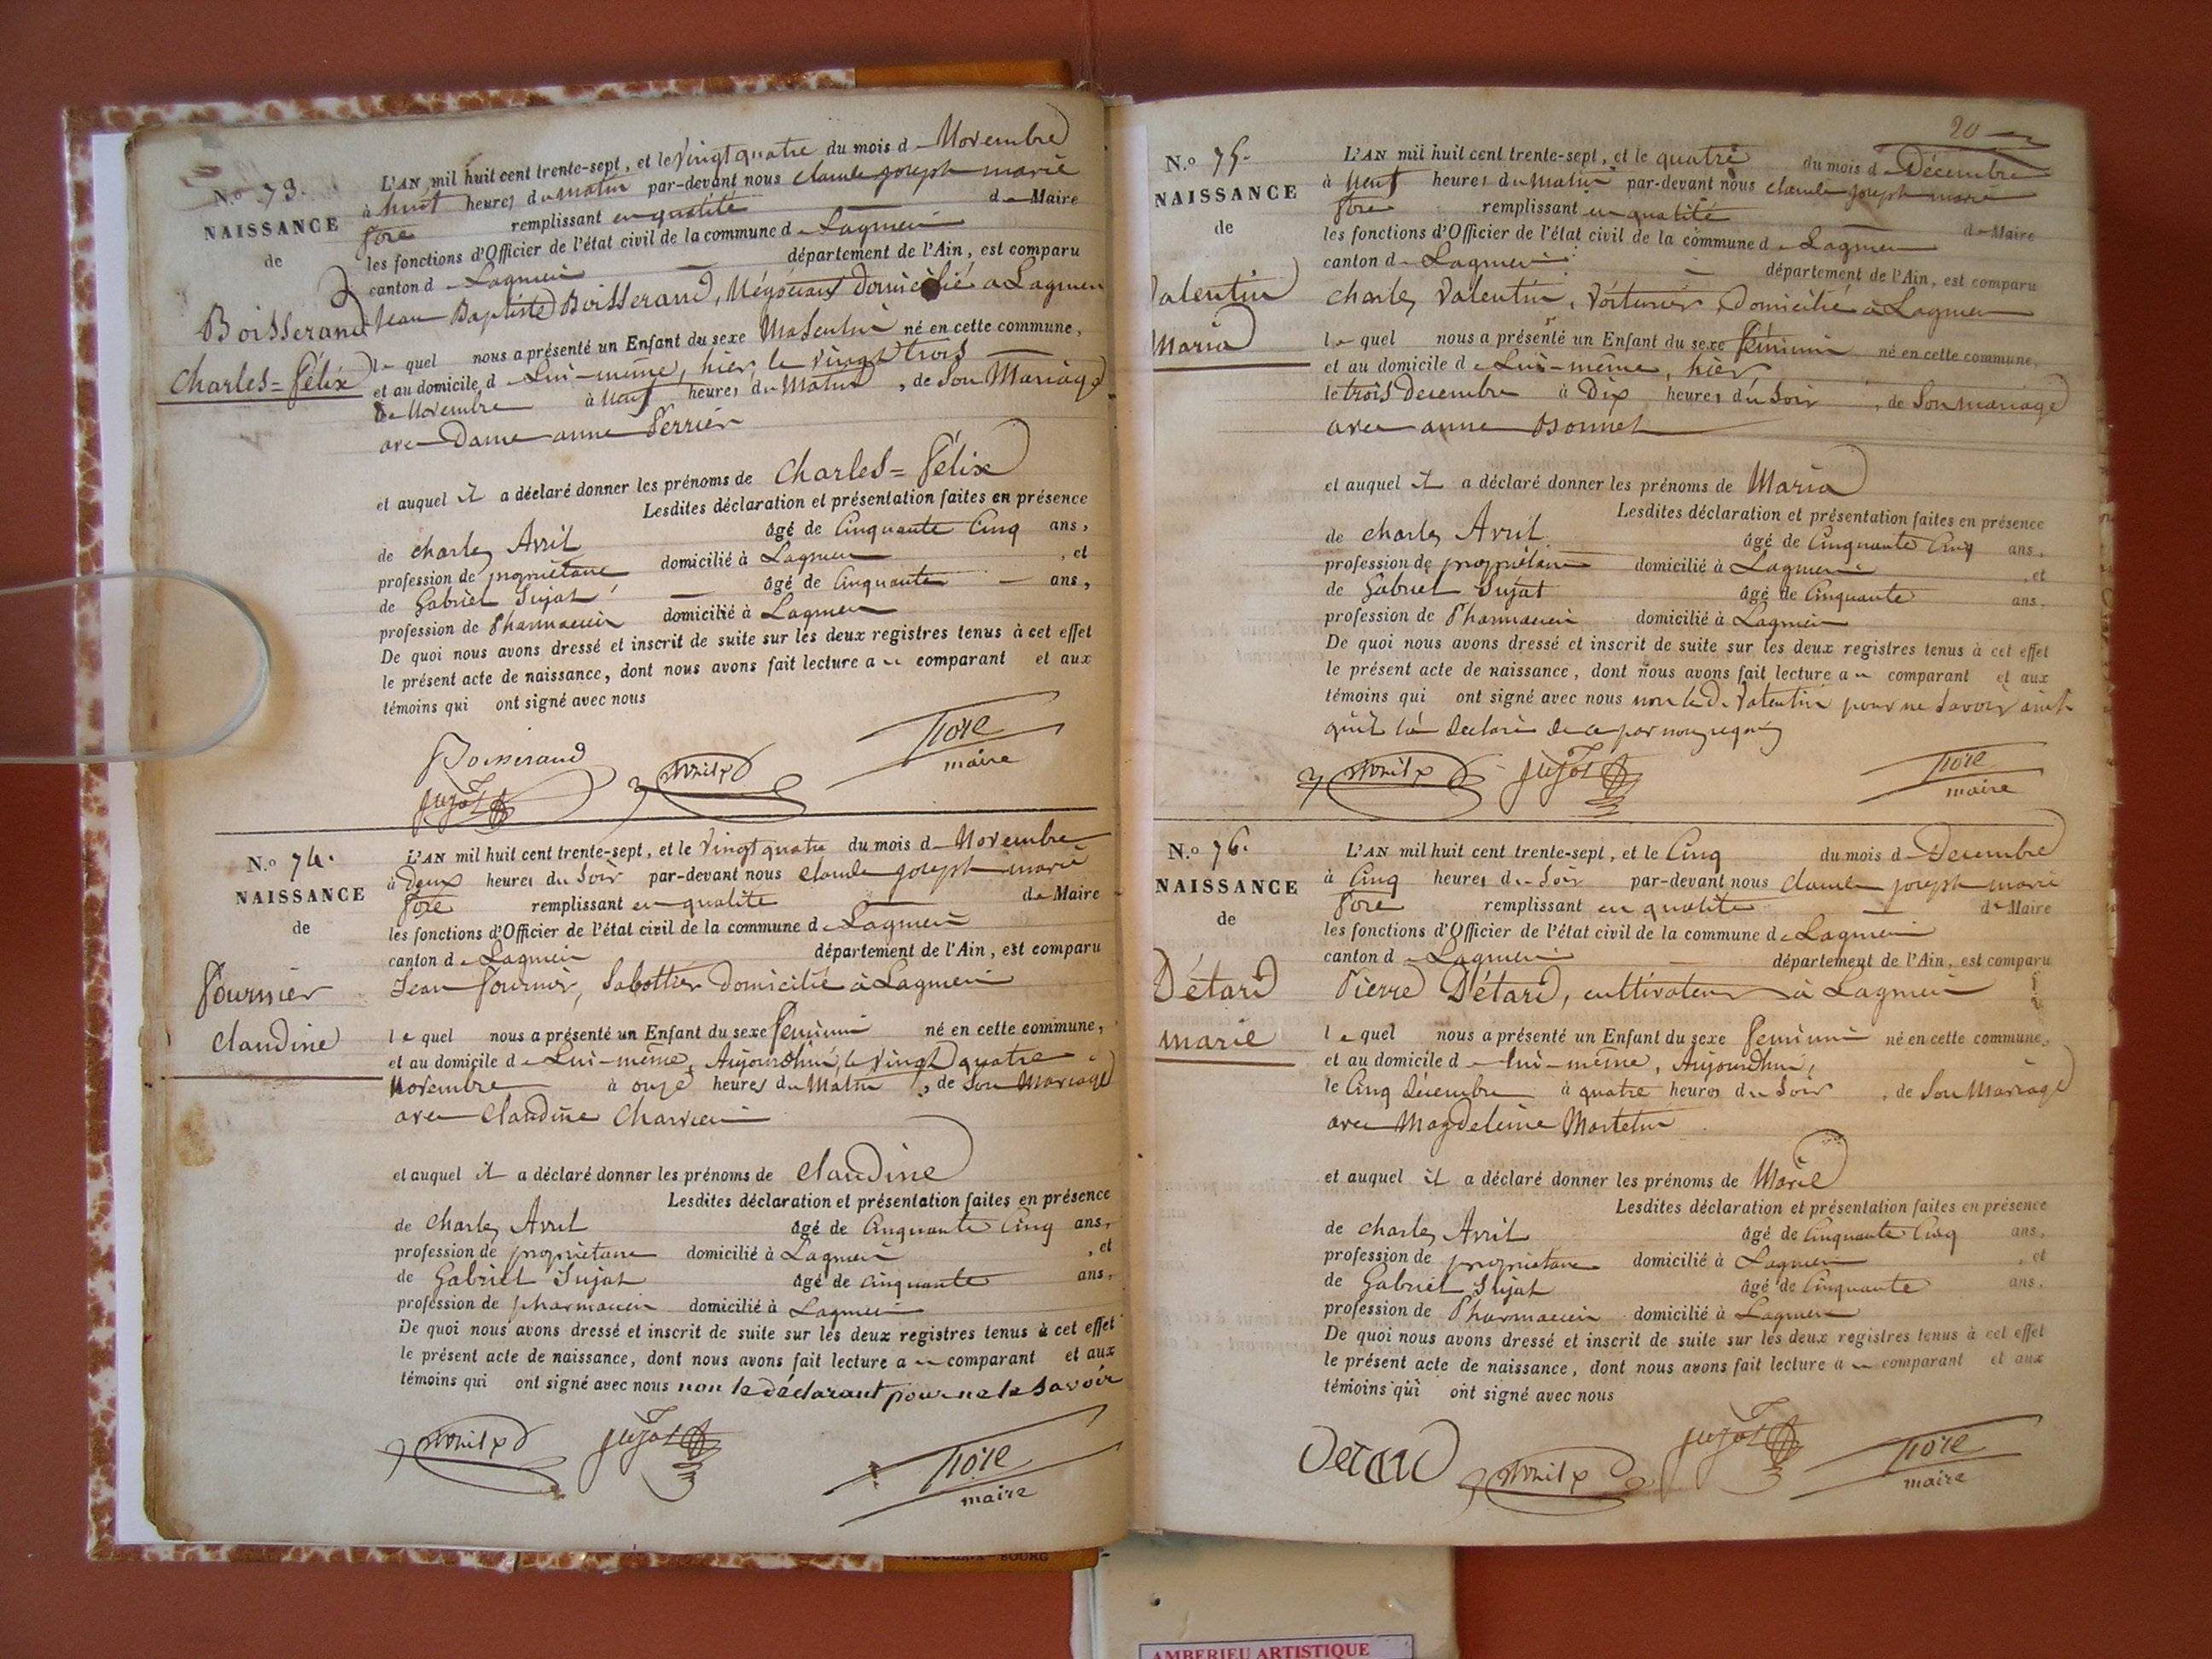 N.o 73.
NAISSANCE
de
Boisserand
Charles=Félix
L'AN mil huit cent trente-sept, et le Vingt quatre du mois d e Novembre
à huit heures du matin par-devant nous claude joseph marie
fore remplissant en qualité de Maire
les fonctions d'Officier de l'état civil de la commune d e Lagnieu
canton d e Lagnieu département de l'Ain, est comparu
Jean Baptiste Boisserand, Négociant domicilié a Lagnieu
le quel nous a présenté un Enfant du sexe Masculin né en cette commune,
et au domicile d e Lui-même, hier, le vingt trois
de Novembre à neuf heures du Matin, de Son Mariage
avec Dame anne Perrier
et auquel il a déclaré donner les prénoms de Charles=Félix
Lesdites déclaration et présentation faites en présence
de charles Avril âgé de Cinquante Cinq ans,
profession de propriétaire domicilié à Lagnieu, et
de Gabriel Sujat âgé de Cinquante ans,
profession de Pharmacien domicilié à Lagnieu
De quoi nous avons dressé et inscrit de suite sur les deux registres tenus à cet effet
le présent acte de naissance, dont nous avons fait lecture au comparant et aux
témoins qui ont signé avec nous
Boisserand
Sujat avril fore
maire
N.o 74.
NAISSANCE
de
Fournier
Claudine
L'AN mil huit cent trente-sept, et le Vingt quatre du mois d e Novembre
à Deux heures du Soir par-devant nous claude joseph marie
fore remplissant en qualité de Maire
les fonctions d'Officier de l'état civil de la commune d e Lagnieu
canton d e Lagnieu département de l'Ain, est comparu
Jean Fournier, Sabottier domicilié à Lagnieu
le quel nous a présenté un Enfant du sexe féminin né en cette commune,
et au domicile d e Lui-même, Aujourdhui, le Vingt quatre
Novembre à onze heures du Matin, de Son Mariage
avec Claudine
et auquel il a déclaré donner les prénoms de Claudine
Lesdites déclaration et présentation faites en présence
de Charles Avril âgé de Cinquante Cinq ans,
profession de propriétaire domicilié à Lagnieu, et
de Gabriel Sujat âgé de cinquante ans,
profession de pharmacien domicilié à Lagnieu
De quoi nous avons dressé et inscrit de suite sur les deux registres tenus à cet effet
le présent acte de naissance, dont nous avons fait lecture au comparant et aux
témoins qui ont signé avec nous non le déclarant pour ne le savoir
avril Sujat fore
maire
20
N.o 75.
NAISSANCE
de
Valentin
Maria
L'AN mil huit cent trente-sept, et le quatre du mois d e Décembre
à Neuf heures du Matin par-devant nous claude joseph marie
fore remplissant en qualité de Maire
les fonctions d'Officier de l'état civil de la commune d e Lagnieu
canton d e Lagnieu département de l'Ain, est comparu
charles Valentin, Voiturier, Domicilié à Lagnieu
le quel nous a présenté un Enfant du sexe féminin né en cette commune,
et au domicile d e Lui-même, hier
le trois Decembre à Dix heures du Soir, de Son mariage
avec anne Bonnet
et auquel il a déclaré donner les prénoms de Maria
Lesdites déclaration et présentation faites en présence
de charles Avril âgé de Cinquante Cinq ans,
profession de propriétaire domicilié à Lagnieu, et
de Gabriel Sujat âgé de Cinquante ans,
profession de Pharmacien domicilié à Lagnieu
De quoi nous avons dressé et inscrit de suite sur les deux registres tenus à cet effet
le présent acte de naissance, dont nous avons fait lecture au comparant et aux
témoins qui ont signé avec nous non led. Valentin pour ne savoir ainsi
qu'il la déclaré de ce par nous requis
avril Sujat fore
maire
N.o 76.
NAISSANCE
de
Détard
marie
L'AN mil huit cent trente-sept, et le Cinq du mois d e Decembre
à Cinq heures du Soir par-devant nous claude joseph marie
fore remplissant en qualité de Maire
les fonctions d'Officier de l'état civil de la commune d e Lagnieu
canton d e Lagnieu département de l'Ain, est comparu
Pierre Détard, cultivateur à Lagnieu
le quel nous a présenté un Enfant du sexe feminin né en cette commune,
et au domicile d e lui-même, Aujourdhui,
le Cinq Décembre à quatre heures du Soir, de Son Mariage
avec Magdeleine
et auquel il a déclaré donner les prénoms de Marie
Lesdites déclaration et présentation faites en présence
de charles Avril âgé de Cinquante Cinq ans,
profession de propriétaire domicilié à Lagnieu, et
de Gabriel Sujat âgé de Cinquante ans,
profession de Pharmacien domicilié à Lagnieu
De quoi nous avons dressé et inscrit de suite sur les deux registres tenus à cet effet
le présent acte de naissance, dont nous avons fait lecture au comparant et aux
témoins qui ont signé avec nous
Detard avril Sujat fore
maire
BOURG
AMBERIEU ARTISTIQUE